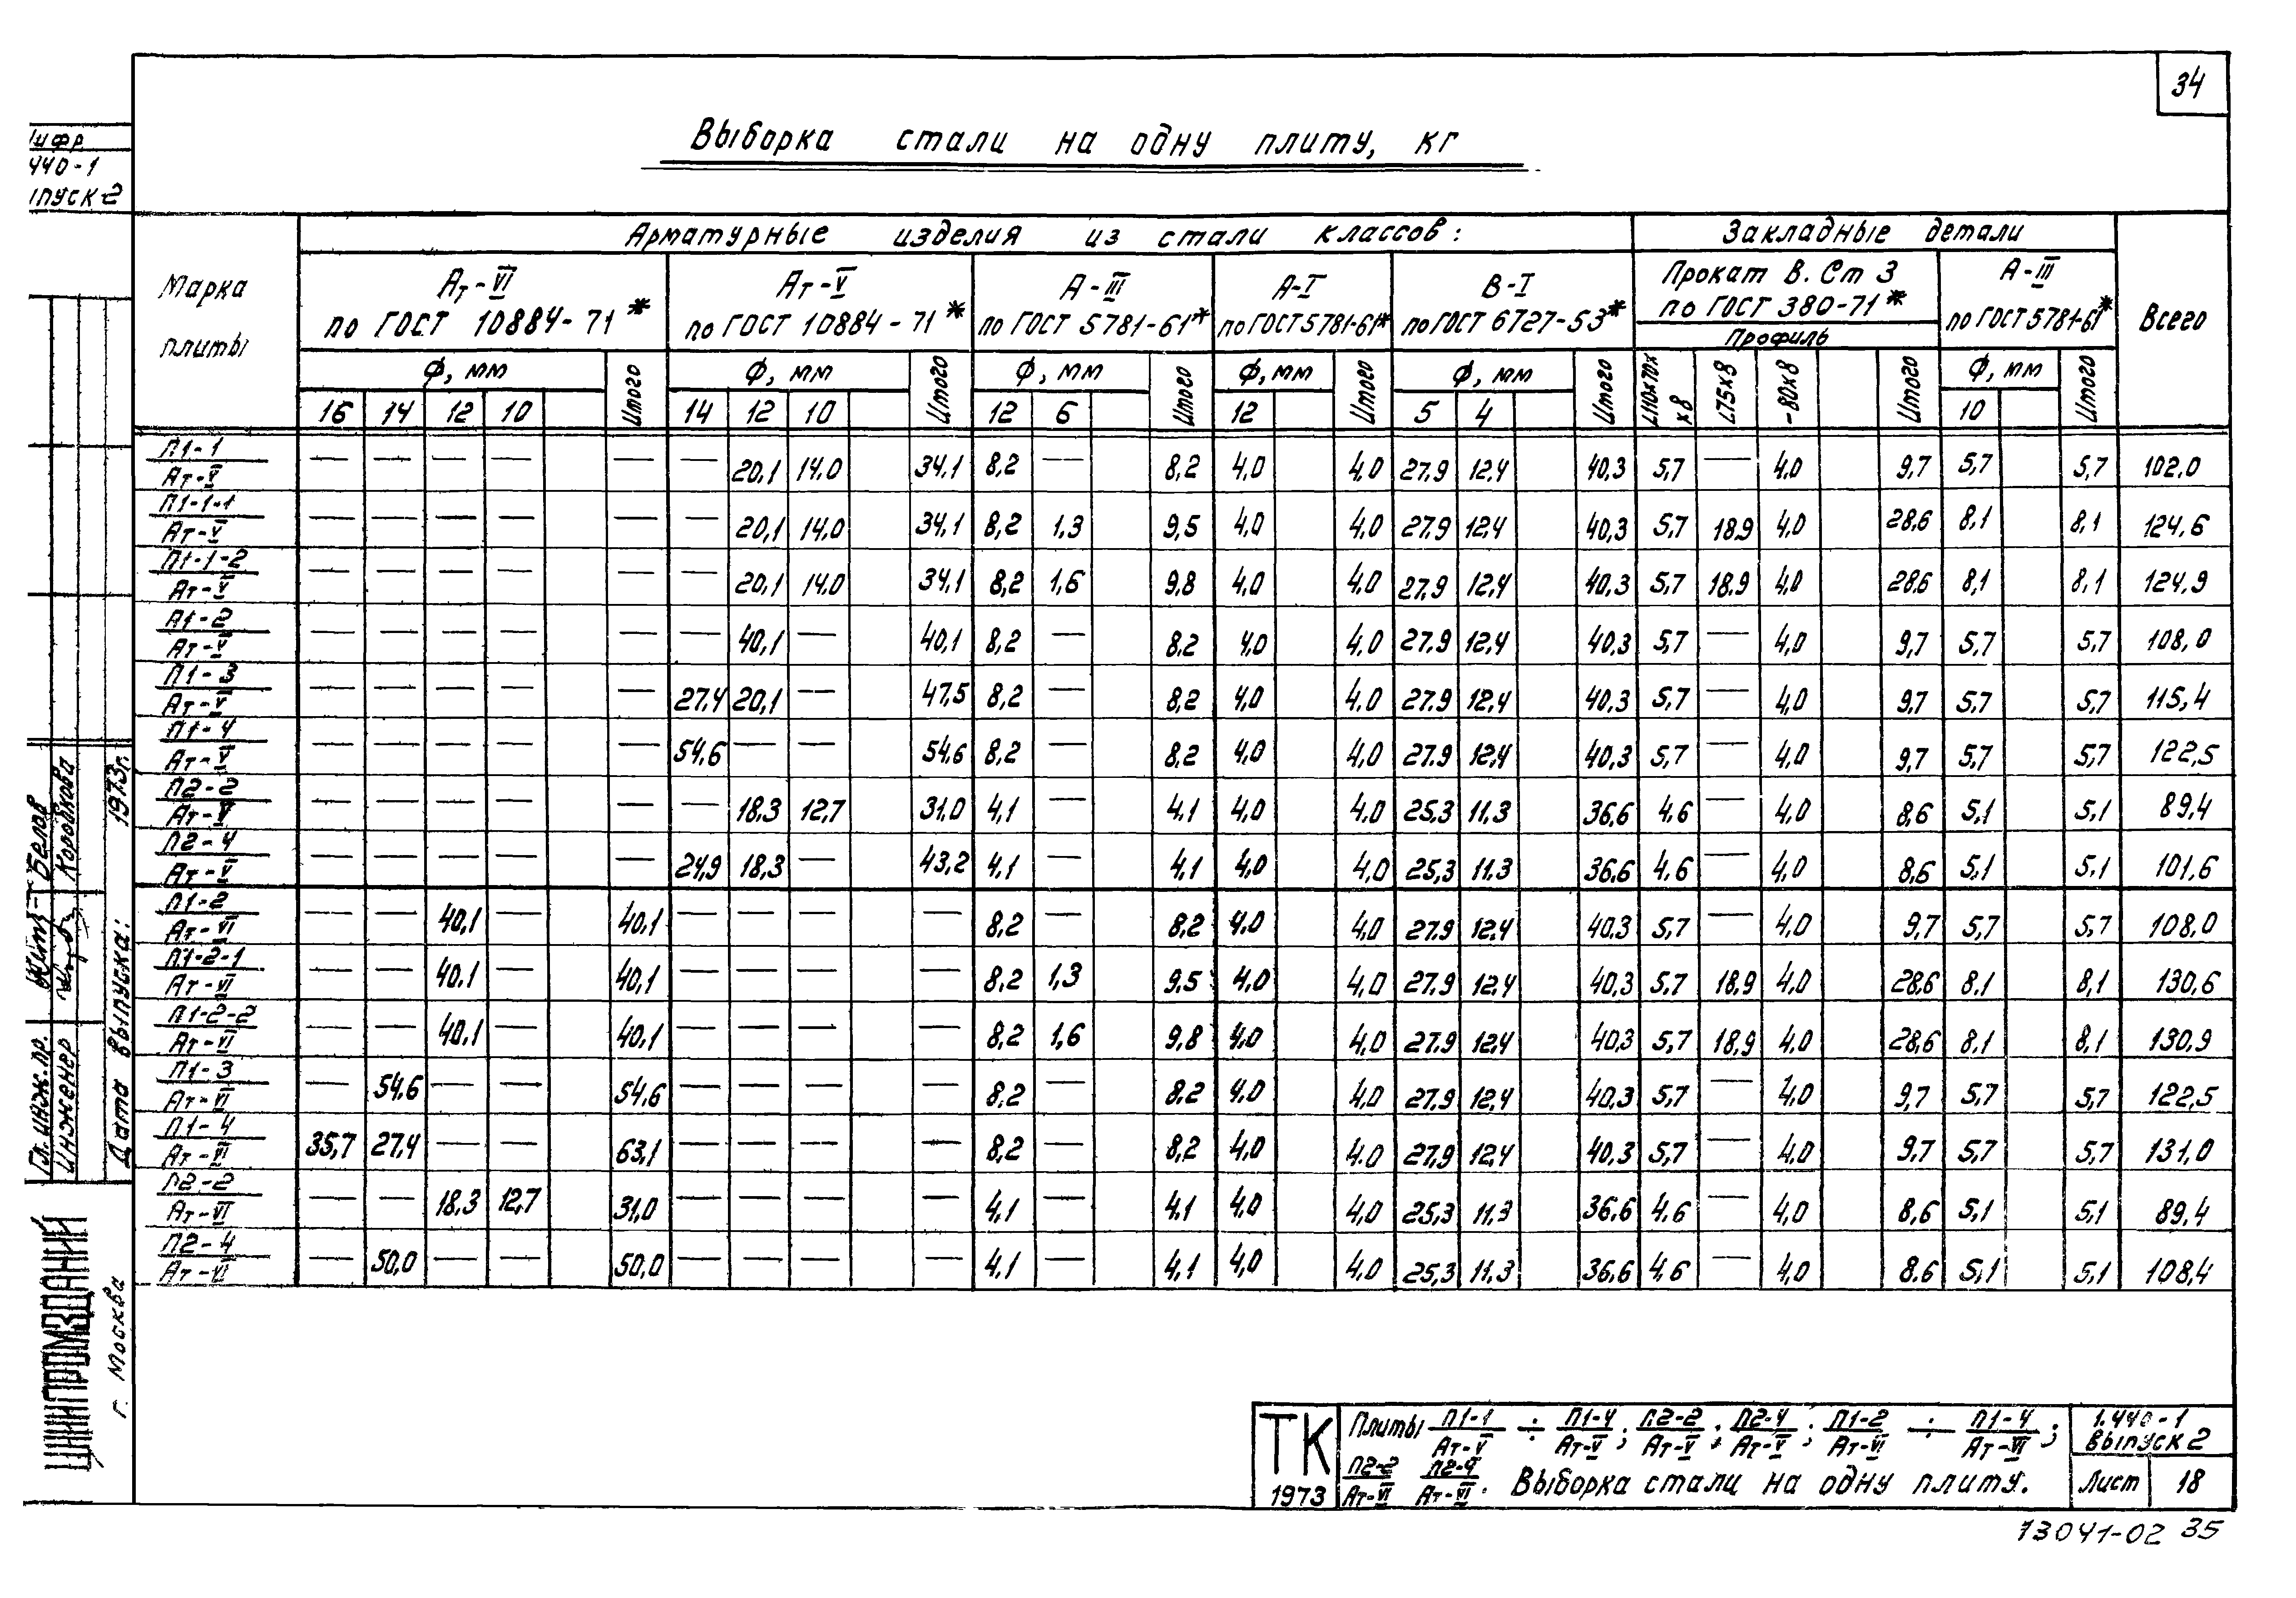 34
Выборка стали на одну плиту, кг
440-1
Марка плиты
Арматурные изделия из стали классов:
Закладные детали
Всего
Ат-VI по ГОСТ 10884-71*
Ат-V по ГОСТ 10884-71*
А-III по ГОСТ 5781-61*
А-I по ГОСТ 5781-61*
В-I по ГОСТ 6727-53*
Прокат В.Ст 3 по ГОСТ 380-71*
Профиль
А-III по ГОСТ 5781-61*
Ф, мм Итого Ф, мм Итого Ф, мм Итого Ф, мм Итого Ф, мм Итого L110х70х х8 L75х8 -80х8 Итого Ф, мм Итого
16 14 12 10 14 12 10 12 6 12 5 4 10
П1-1 Ат-V — — — — — — 20,1 14.0 34.1 8.2 — 8,2 4.0 4.0 27.9 12.4 40.3 5.7 — 4.0 9.7 5.7 5.7 102.0
П1-1-1 Ат-V — — — — — — 20,1 14.0 34.1 8.2 1.3 9,5 4.0 4.0 27.9 12.4 40,3 5.7 18.9 4.0 28.6 8.1 8,1 124,6
П1-1-2 Ат-V — — — — — — 20,1 14.0 34.1 8,2 1,6 9.8 4.0 4.0 27.9 12.4 40.3 5.7 18.9 4.0 28.6 8,1 8,1 124,9
П1-2 Ат-V — — — — — — 40,1 — 40,1 8.2 — 8.2 4.0 4.0 27.9 12.4 40.3 5.7 — 4.0 9,7 5,7 5,7 108,0
П1-3 Ат-V — — — — — 27.4 20,1 — 47.5 8.2 — 8.2 4.0 4.0 27.9 12.4 40.3 5.7 — 4.0 9.7 5.7 5.7 115,4
П1-4 Ат-V — — — — — 54.6 — — 54.6 8.2 — 8.2 4.0 4.0 27.9 12.4 40.3 5,7 — 4.0 9,7 5,7 5,7 122,5
П2-2 Ат-V — — — — — — 18.3 12,7 31.0 4.1 — 4.1 4.0 4.0 25.3 11.3 36.6 4.6 — 4.0 8,6 5,1 5,1 89,4
П2-4 Ат-V — — — — — 24,9 18,3 — 43,2 4.1 — 4.1 4.0 4.0 25,3 11.3 36.6 4.6 — 4.0 8,6 5,1 5,1 101,6
П1-2 Ат-VI — — 40.1 — 40,1 — — — — 8.2 — 8.2 4.0 4.0 27.9 12.4 40.3 5.7 — 4.0 9,7 5,7 5,7 108.0
П1-2-1 Ат-VI — — 40.1 — 40,1 — — — — 8.2 1,3 9.5 4.0 4.0 27.9 12.4 40,3 5.7 18.9 4.0 28.6 8.1 8,1 130,6
П1-2-2 Ат-VI — — 40.1 — 40,1 — — — — 8.2 1,6 9.8 4.0 4.0 27.9 12.4 40.3 5.7 18,9 4.0 28,6 8.1 8,1 130,9
П1-3 Ат-VI — 54.6 — — 54.6 — — — — 8.2 — 8.2 4.0 4.0 27.9 12.4 40,3 5,7 — 4.0 9,7 5,7 5,7 122.5
П1-4 Ат-VI 35,7 27.4 — — 63,1 — — — — 8.2 — 8,2 4.0 4.0 27.9 12.4 40,3 5,7 — 4.0 9.7 5,7 5,7 131,0
П2-2 Ат-VI — — 18.3 12,7 31.0 — — — — 4.1 — 4.1 4.0 4.0 25,3 11.3 36.6 4.6 — 4.0 8,6 5,1 5,1 89,4
П2-4 Ат-VI — 50.0 — — 50,0 — — — — 4.1 — 4.1 4.0 4.0 25,3 11.3 36,6 4,6 — 4,0 8.6 5,1 5,1 108,4
Гл. инж. пр. Белов
Инженер Коровкова
Дата выпуска: 1973г.
ЦНИИПРОМЗДАНИЙ
г. Москва
ТК
1973
Плиты П1-1/Ат-V ÷ П1-4/Ат-V; П2-2/Ат-V; П2-4/Ат-V; П1-2/Ат-VI ÷ П1-4/Ат-VI;
П2-2/Ат-VI П2-4/Ат-VI. Выборка стали на одну плиту.
1.440-1 выпуск 2
Лист 18
13041-02 35